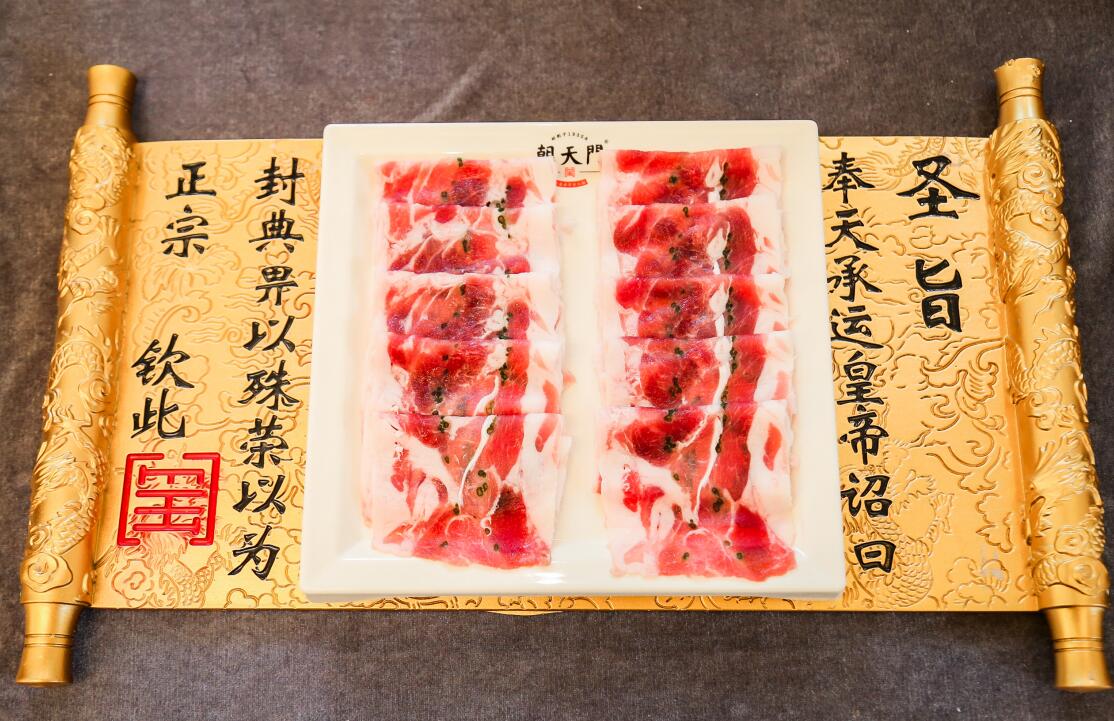 圣旨
奉天承运皇帝诏曰
朝天門
封典畀以殊荣以为
正宗
钦此